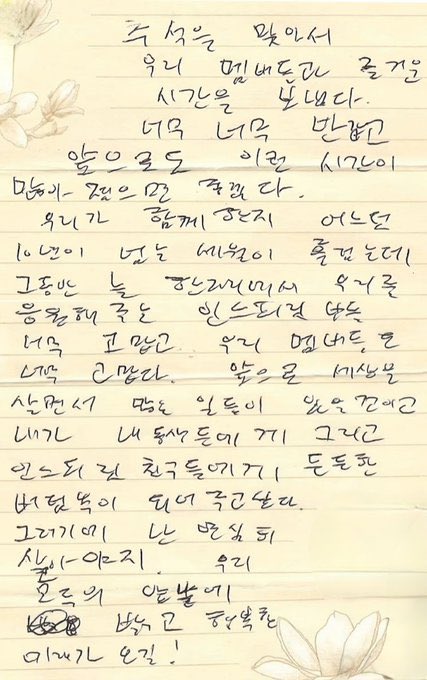 추석을 맞아서
우리 멤버들과 즐거운
시간을 보냈다.
너무 너무 반갑고
앞으로도 이런 시간이
많아 졌으면 좋겠다.
우리가 함께 한지 어느덧
10년이 넘는 세월이 흘렀는데
그동안 늘 한자리에서 우리를
응원해 주는 인스피릿 분들
너무 고맙고 우리 멤버들도
너무 고맙다. 앞으로 세상을
살면서 많은 일들이 있을 것이고
내가 내 동생들에게 그리고
인스피릿 친구들에게 든든한
버팀목이 되어 주고싶다.
그러기에 난 열심히
살아야지. 우리
모두의 앞날에
밝고 행복한
미래가 오길!